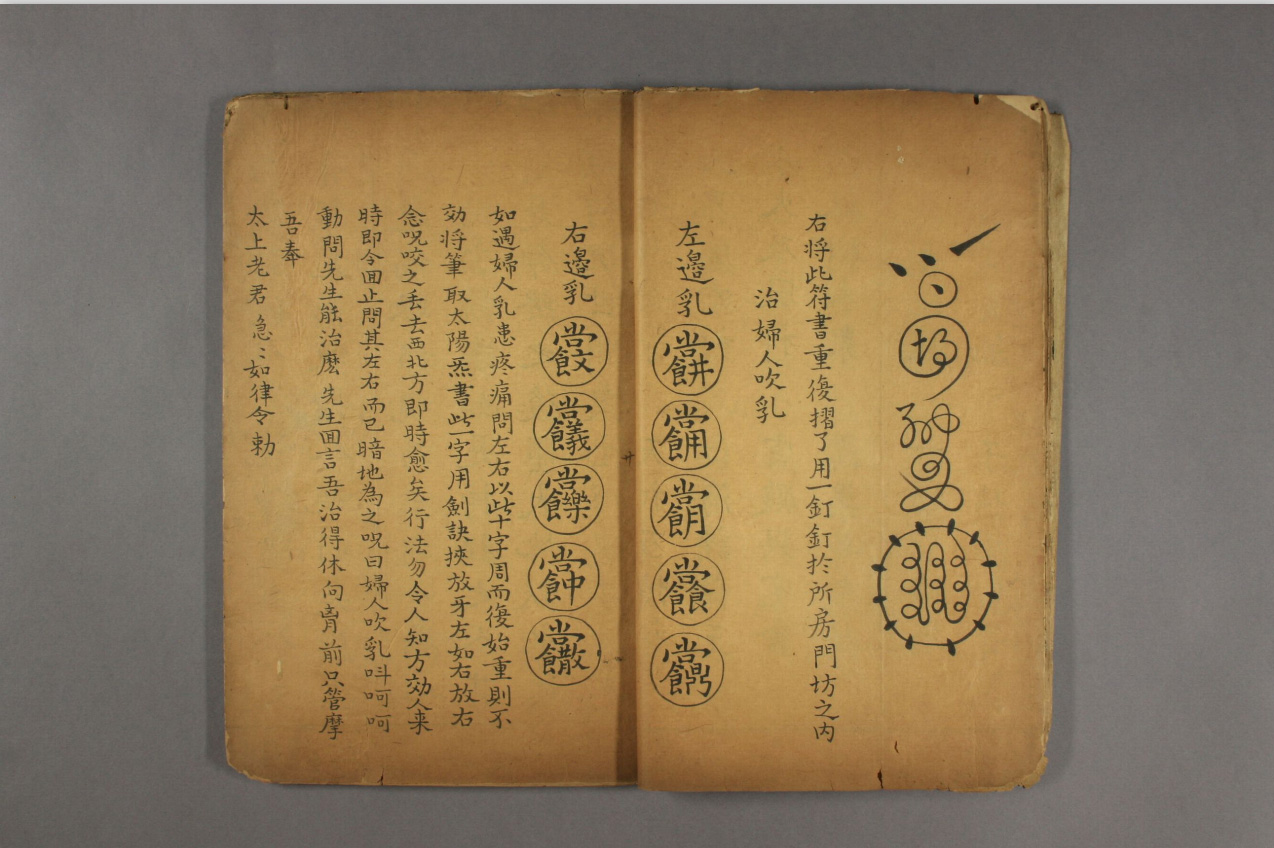 右将此符書重復摺了用一釘釘扵所房門坊之内
治婦人吹乳
左邊乳
右邊乳
如遇婦人乳患疼痛問左右以此十字周而復始重則不
効将筆取太陽炁書此一字用劍訣挾放牙左如右放右
念呪咬之丢去西北方即時愈矣行法勿令人知方効人来
時即令囬止問其左右而已暗地為之呪曰婦人吹乳呌呵呵
動問先生能治麽先生囬言吾治得休向胷前只管摩
吾奉
太上老君急〻如律令勅